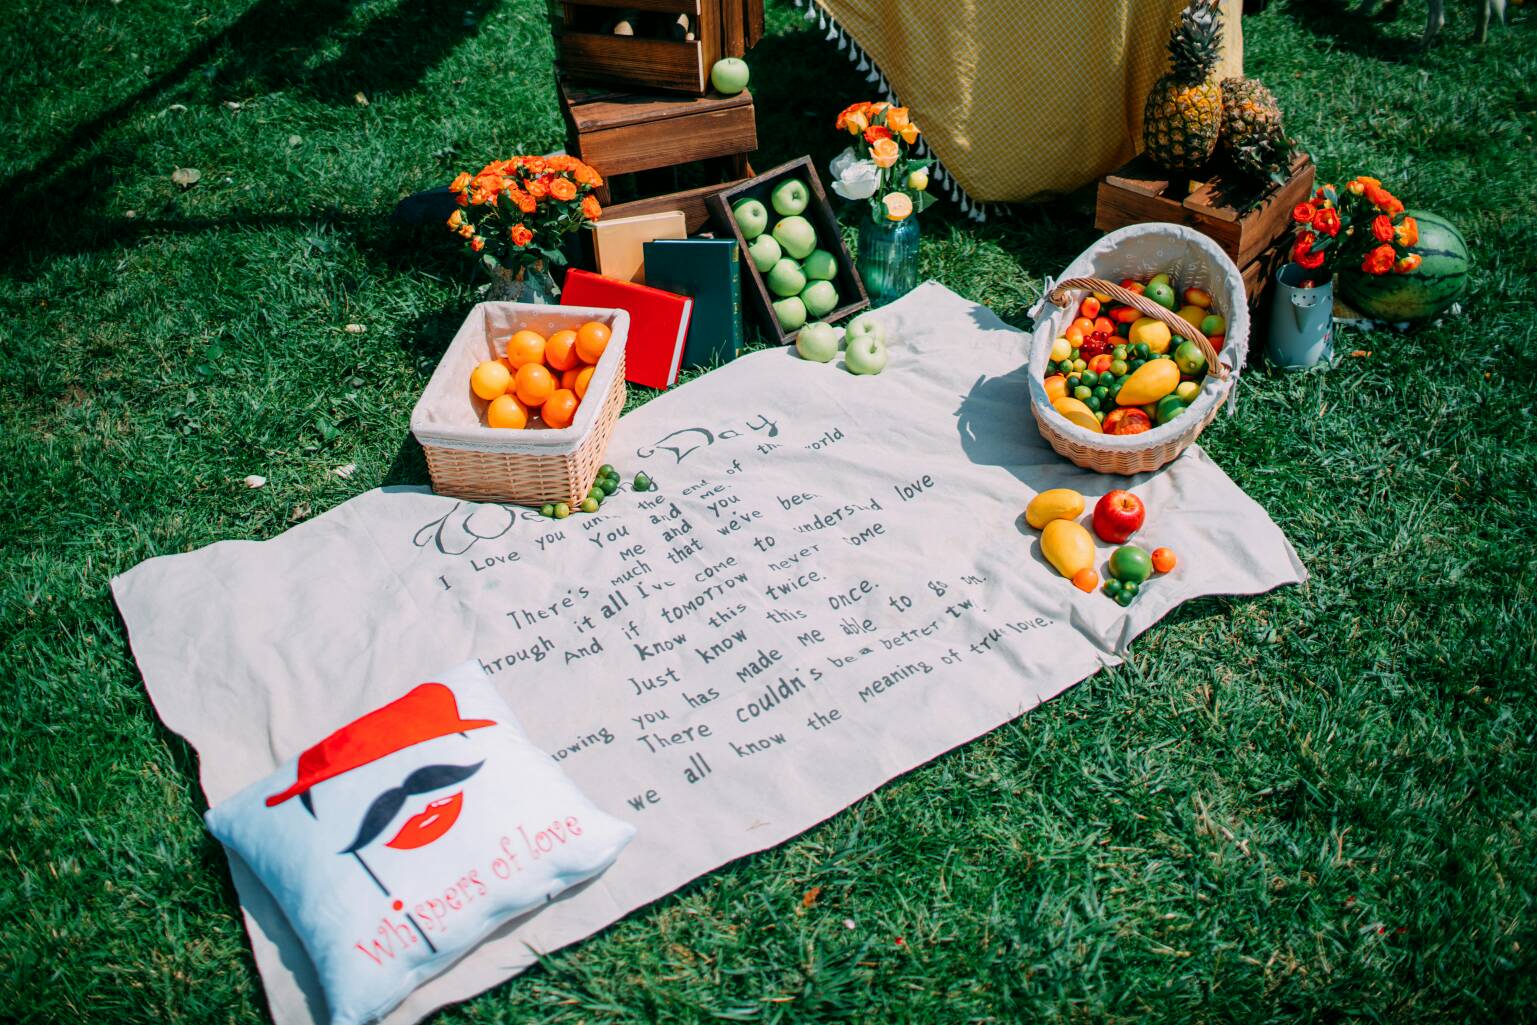 Wedding Day
I Love you until the end of the world
You and me.
Me and you
There's much that we've been
hrough it all I've come to understnd love
And if tomorrow never ome
Know this twice.
Just know this once.
nowing you has made me able to go on.
There couldn's be a better tw
we all know the meaning of true love.
Whispers of love